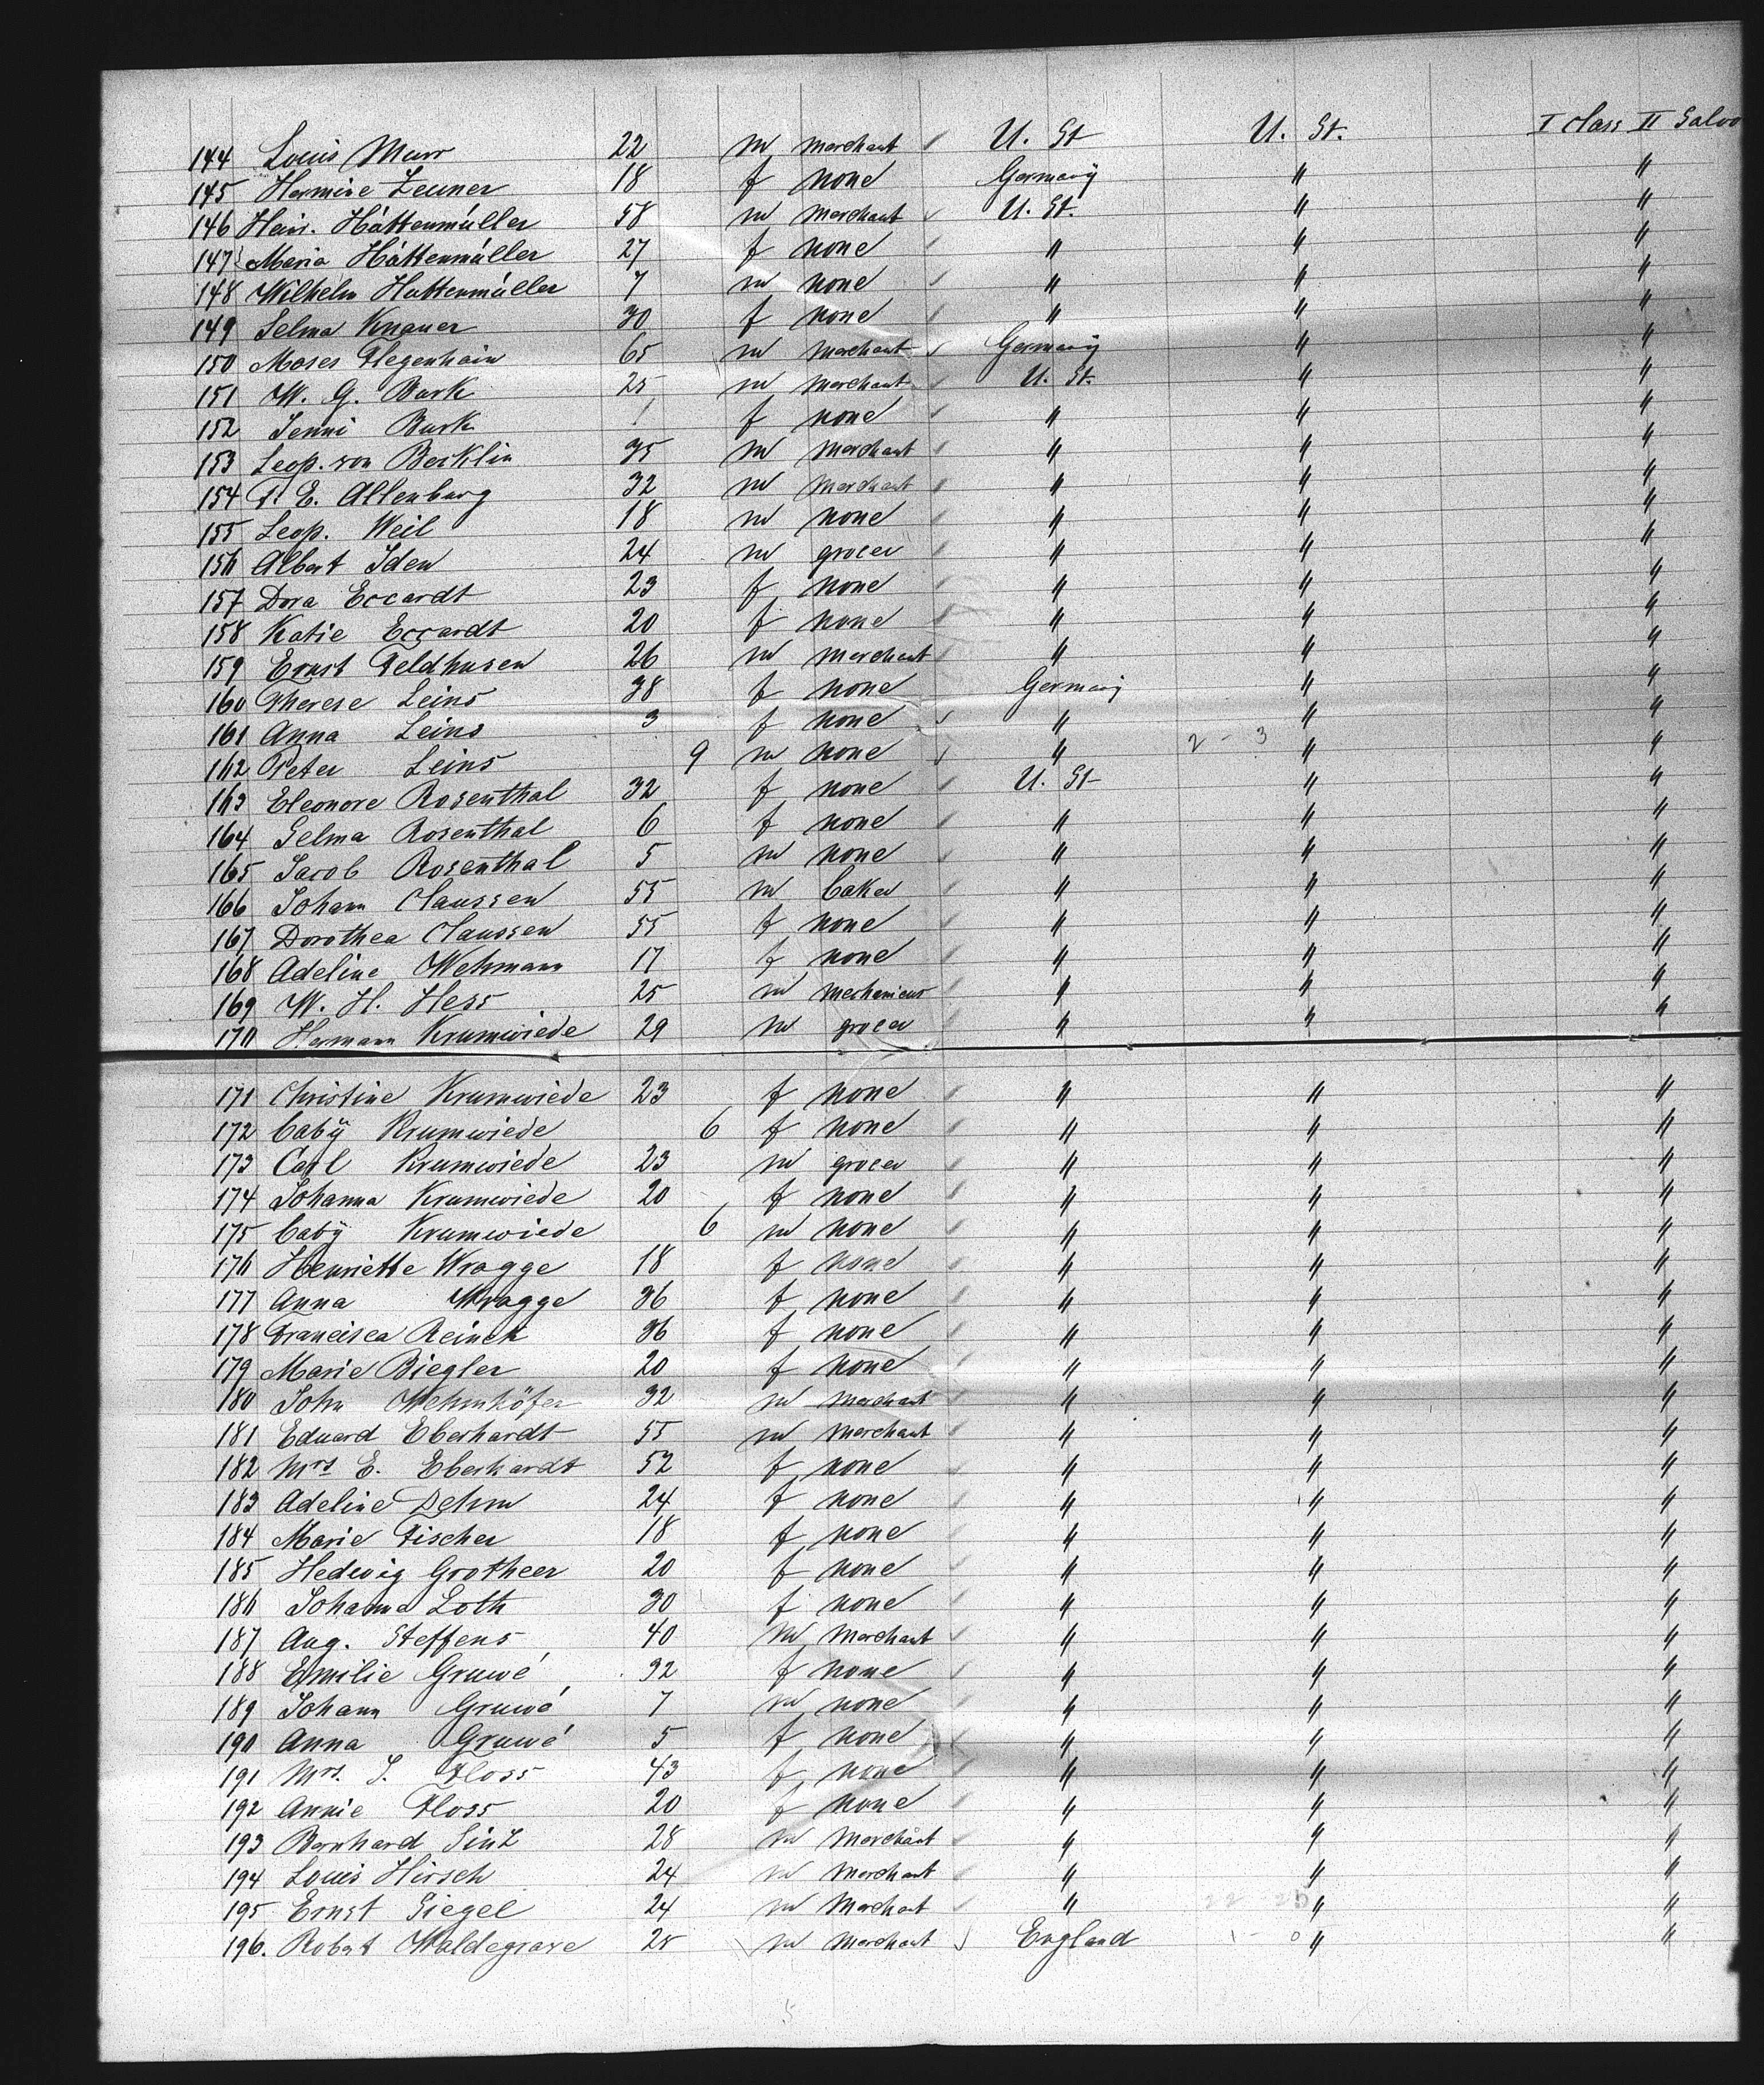 I class II Salon
144 Louis Murr 22 m merchant U. St U. St.
145 Hermine Zeuner 18 f none Germany "  "
146 Heinr. Háttenmúller 58 m merchant U. St. " "
147 Maria Háttenmúller 27 f none " " "
148 Wilhelm Hattenmúller 7 m none " " "
149 Selma Knauer 30 f none " " "
150 Moses Flegenhain 65 m merchant Germany " "
151 W. G. Bark 25 m merchant U. St. " "
152 Jenni Bark ! f none " " "
153 Leop. von Becklin 35 m merchant " " "
154 F. E. Altenburg 32 m merchant " " "
155 Leop. Weil 18 m none " " "
156 Albert Iden 24 m grocer " " "
157 Dora Eccardt 23 f none " " "
158 Katie Eccardt 20 f none " " "
159 Ernst Feldhusen 26 m merchant " " "
160 Therese Leins 38 f none Germany " "
161 Anna Leins 3 f none " " "
162 Peter Leins 9 m none " 2 - 3 " "
163 Eleonore Rosenthal 32 f none U. St " "
164 Selma Rosenthal 6 f none " " "
165 Jacob Rosenthal 5 m none " " "
166 Johann Claussen 55 m baker " " "
167 Dorothea Claussen 55 f none " " "
168 Adeline Wehmann 17 f none " " "
169 W. H. Hess 25 m mechanicus " " "
170 Hermann Krumwiede 29 m grocer " " "
171 Christine Krumwiede 23 f none " " "
172 baby Krumwiede 6 f none " " "
173 Carl Krumwiede 23 m grocer " " "
174 Johanna Krumwiede 20 f none " " "
175 baby Krumwiede 6 m none " " "
176 Henriette Wragge 18 f none " " "
177 Anna Wragge 36 f none " " "
178 Francisca Reinek 36 f none " " "
179 Marie Biegler 20 f none " " "
180 John Wehmhöfer 32 m merchant " " "
181 Eduard Eberhardt 55 m merchant " " "
182 Mrs E. Eberhardt 52 f none " " "
183 Adeline Dehm 24 f none " " "
184 Marie Fischer 18 f none " " "
185 Hedwig Grotheer 20 f none " " "
186 Johanna Loth 30 f none " " "
187 Aug. Steffens 40 m merchant " " "
188 Emilie Gruwé 32 f none " " "
189 Johann Gruwé 7 m none " " "
190 Anna Gruwé 5 f none " " "
191 Mrs. J. Floss 43 f none " " "
192 Annie Floss 20 f none " " "
193 Bernhard Sinz 28 m merchant " " "
194 Louis Hirsch 24 m merchant " " "
195 Ernst Siegel 24 m merchant " " "
196. Robert Waldegrave 25 m merchant England 1 - 0 " "